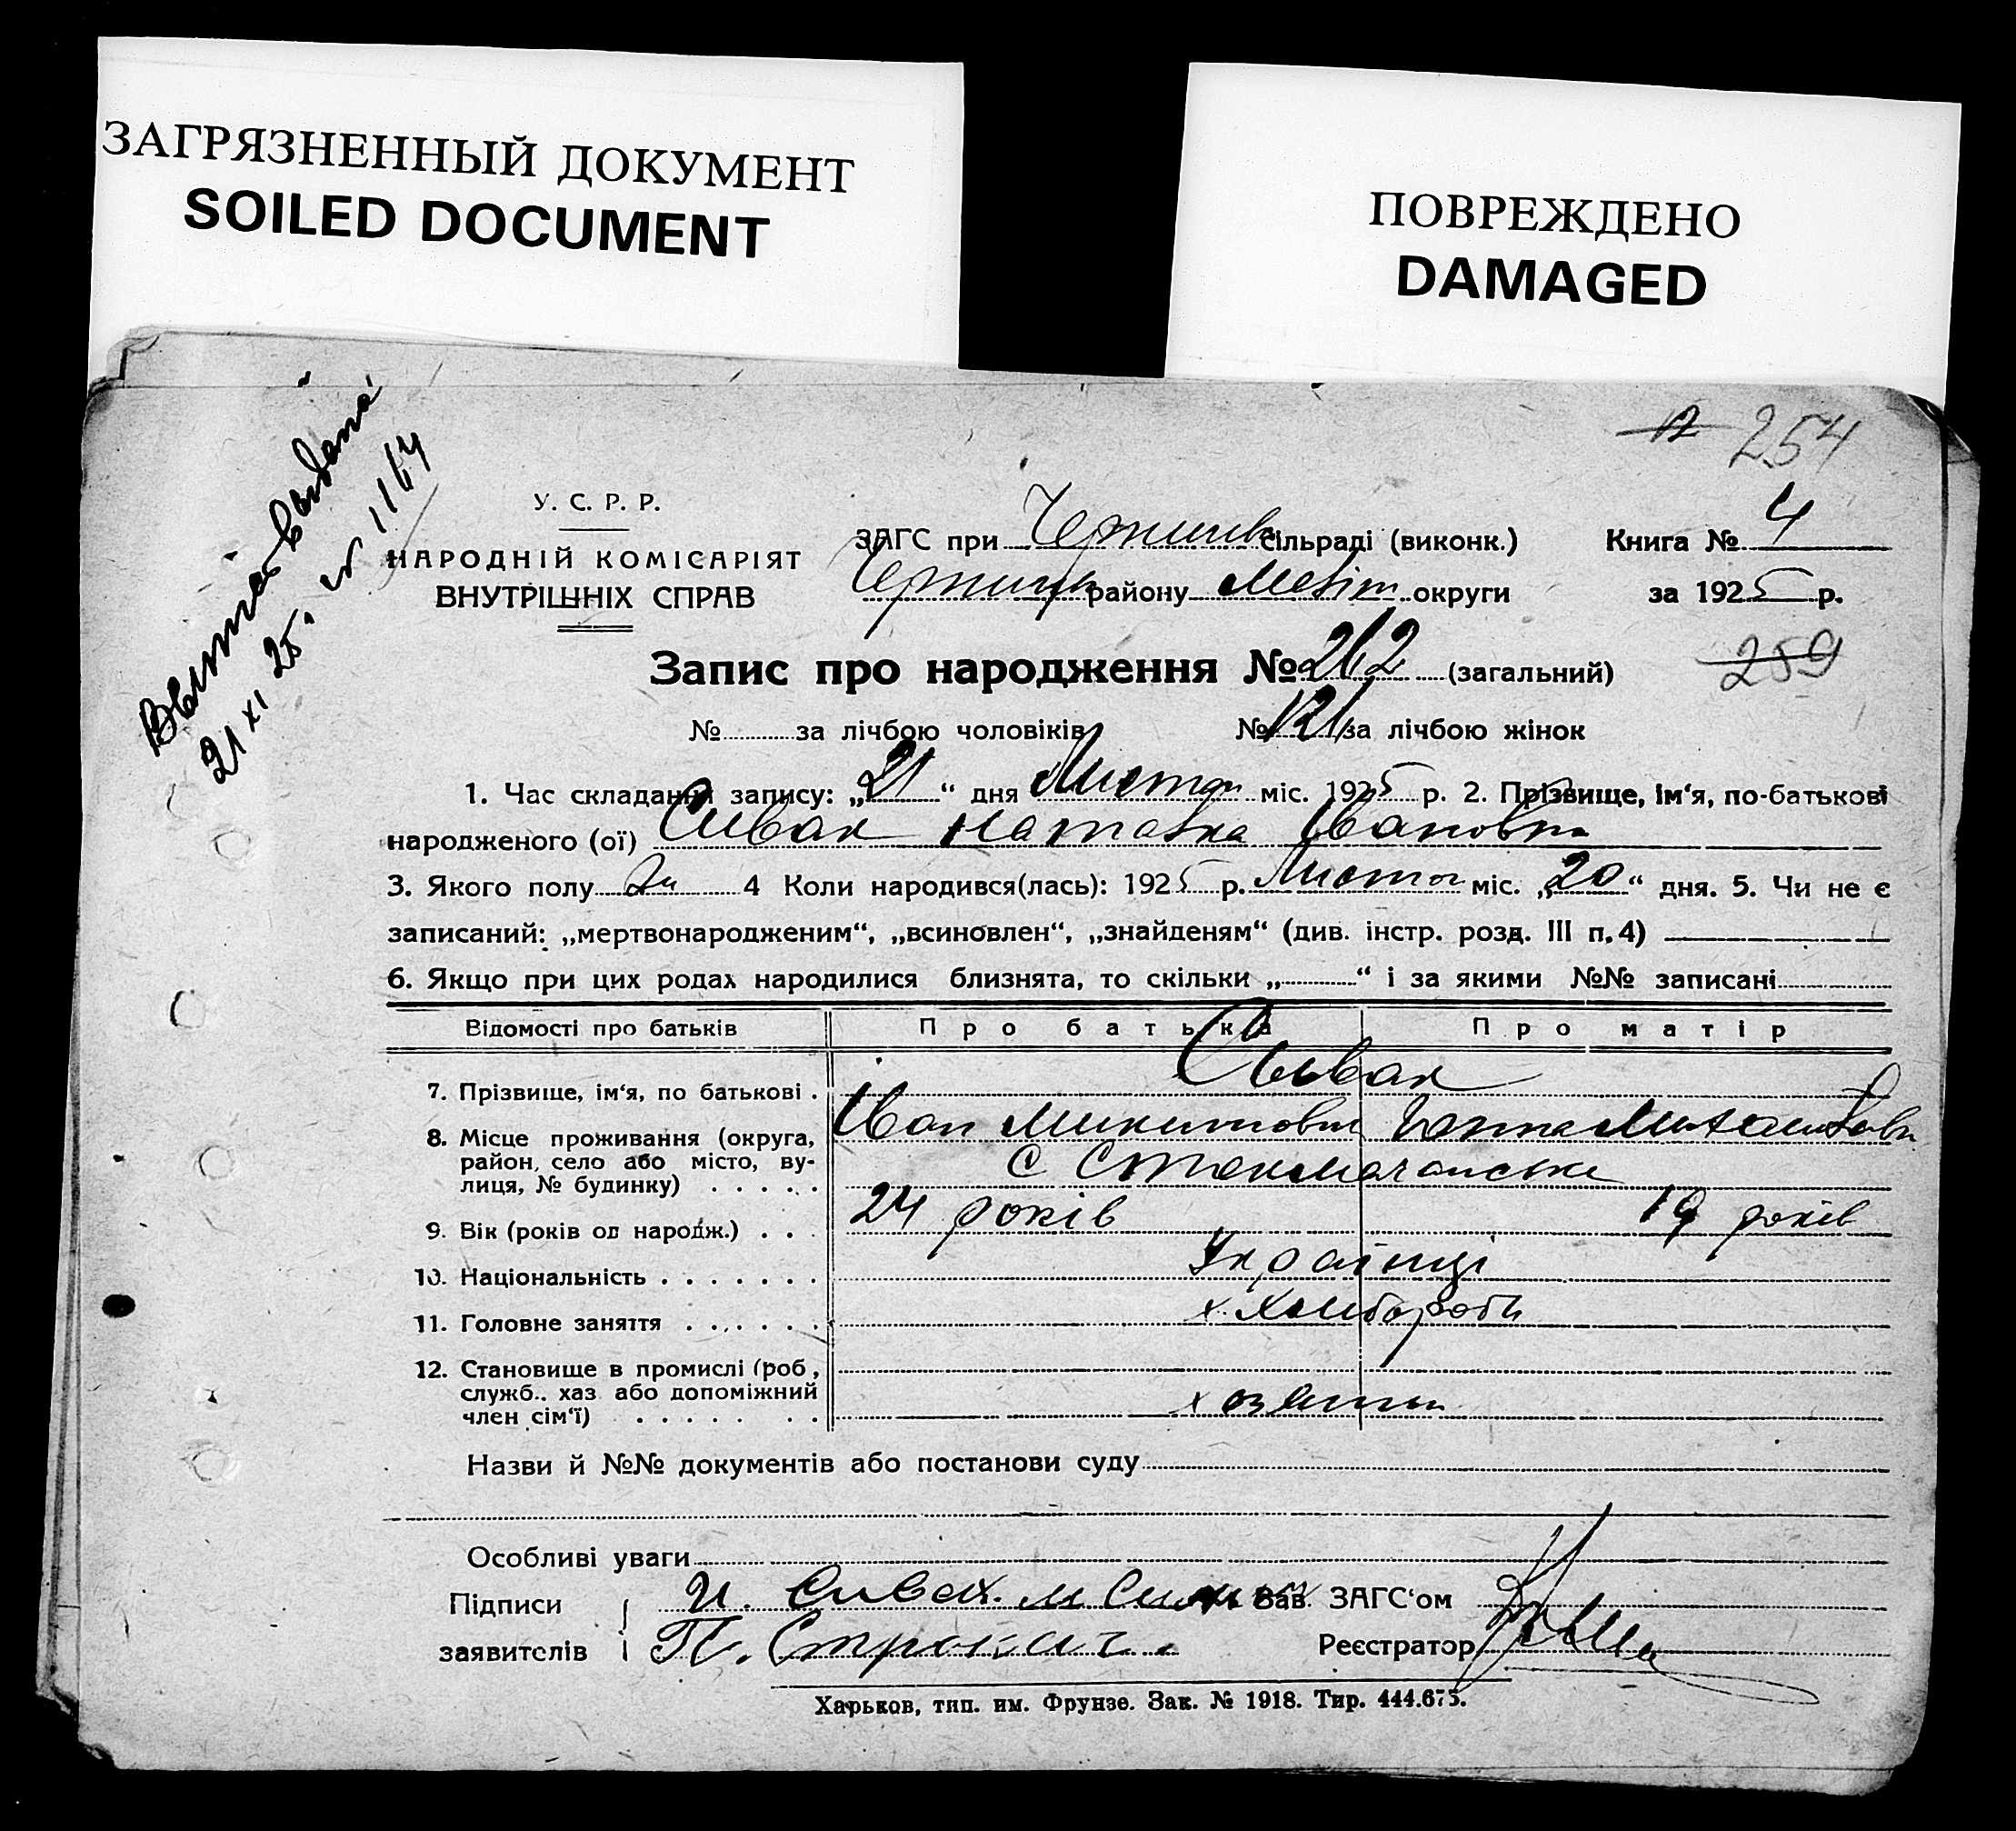 ЗАГРЯЗНЕННЫЙ ДОКУМЕНТ
SOILED DOCUMENT
ПОВРЕЖДЕНО
DAMAGED
254
21 XI 25. № 1164
У. С. Р. Р.
НАРОДНІЙ КОМІСАРІЯТ
ВНУТРІШНІХ СПРАВ
ЗАГС при Черниив сільраді (виконк.)
району Меліт округи
Книга № 4
за 1925 р.
Запис про народження № 262 (загальний)
259
№ за лічбою чоловіків № 121 за лічбою жінок
1. Час складання запису: „21“ дня Листоп міс. 1925 р. 2. Прізвище, ім‘я, по-батькові
народженого (ої) Сивак Наталка Івановна
3. Якого полу жи 4 Коли народився(лась): 1925 р. Листоп міс. „20“ дня. 5. Чи не є
записаний: „мертвонародженим“, „всиновлен“, „знайденям“ (див. інстр. розд. III п. 4)
6. Якщо при цих родах народилися близнята, то скільки „ “ і за якими №№ записані
Відомості про батьків Про батька Про матір
7. Прізвище, ім‘я, по батькові . Сывак
Іван Микитович
8. Місце проживання (округа, район, село або місто, вулиця, № будинку) . . . . .
9. Вік (років од народж.) . . . 24 років 19 років
10. Національність . . . . . . . Українці
11. Головне заняття . . . . . . хлібороби
12. Становище в промислі (роб, служб.. хаз або допоміжний член сім‘ї) . . . . . . .
Назви й №№ документів або постанови суду
Особливі уваги
Підписи И. Сивак. Зав. ЗАГС‘ом
заявителів П. Строкач. Реєстратор
Харьков, тип. им. Фрунзе. Зак. № 1918. Тир. 444.675.